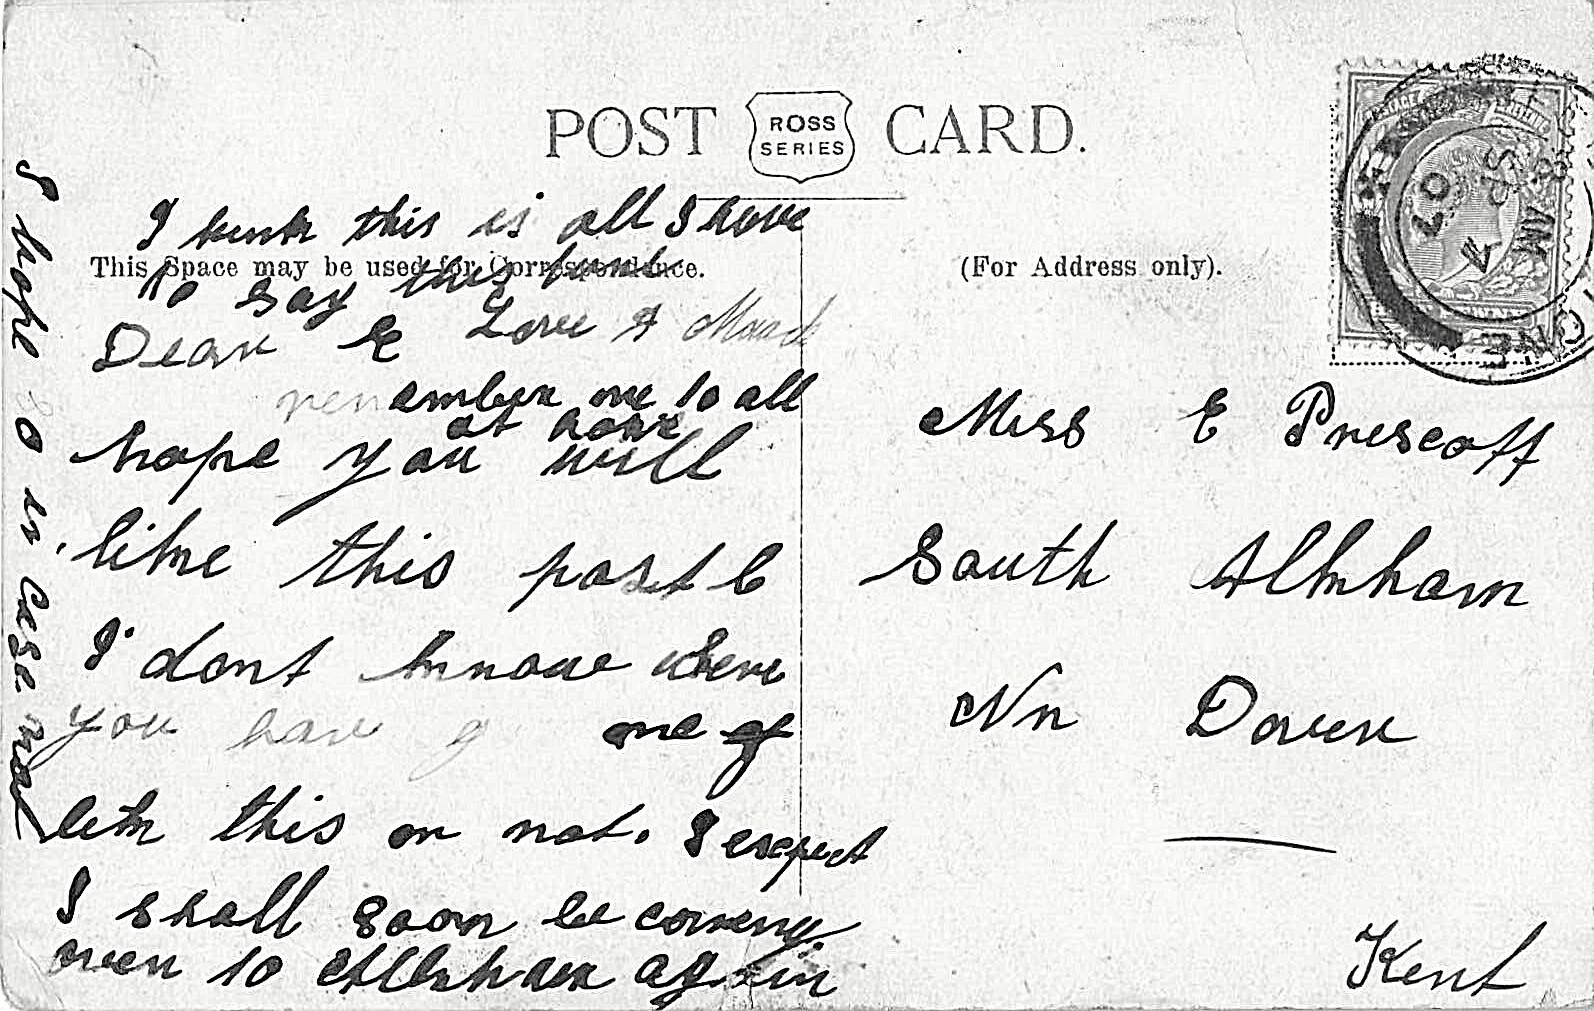 POST CARD.
ROSS
SERIES
This Space may be used for Correspondence.
(For Address only).
Dear E
hope you will
like this post C
I dont knnow where
you have g one of
lik this or not. I expect
I shall soon be coming
over to again
I hope in case
I this is all I have
to say this
Love &
remember me to all
at home
Miss E Prescott
South Alkham
Nr Dover
Kent
8 AM
SP 7
07